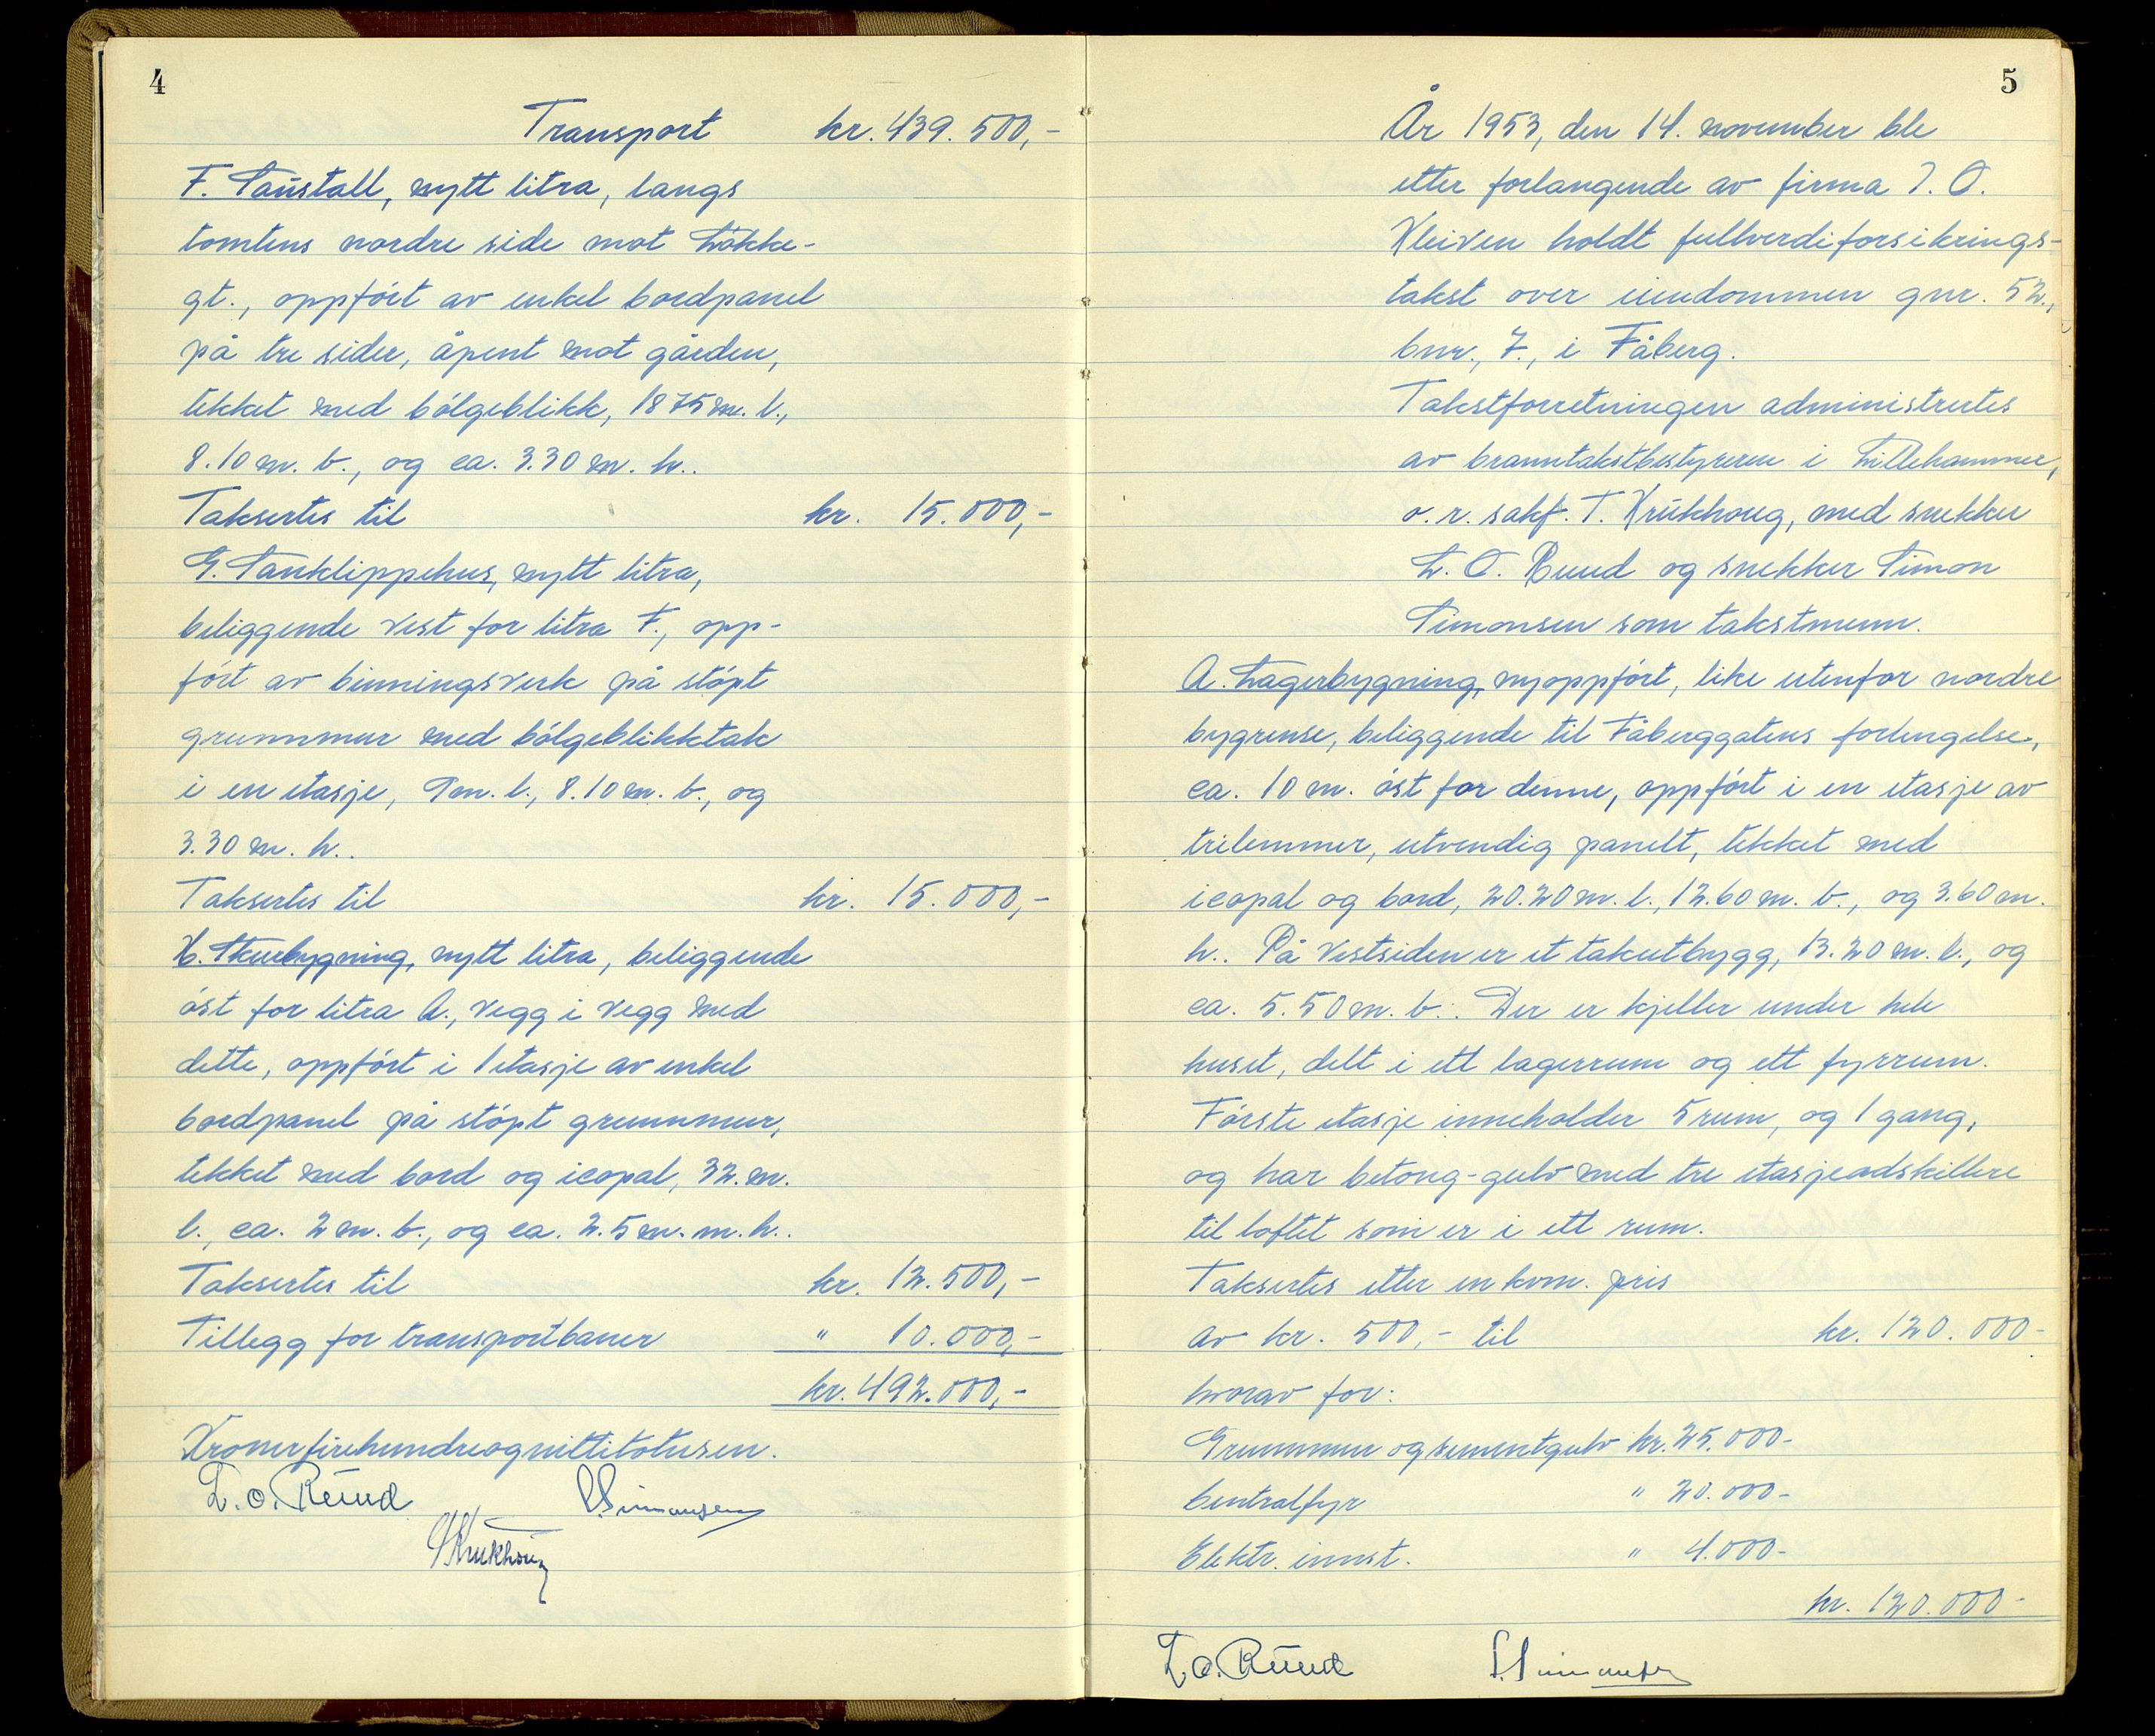 4
Transport kr. 439.500,-
F. Saustall, nytt litra, langs
tomtens nordre side mot Løkke-
gt., oppført av enkel bordpanel
på tre sider, åpent mot gården,
tekket med bølgeblikk, 1875 m. l.,
8.10 m. b., og ca. 3.30 m. h..
Taksertes til kr. 15.000,-
G. Sauklippehus, nytt litra,
beliggende vest for litra F., opp-
ført av binningsverk på støpt
grunnmur med bølgeblikktak
i en etasje, 9 m. l., 8.10 m. b., og
3.30 m. h..
Taksertes til kr. 15.000,-
H. Skurbygning, nytt litra, beliggende
øst for litra A., vegg i vegg med
dette, oppført i 1 etasje av enkel
bordpanel på støpt grunnmur,
tekket med bord og icopal, 32. m.
l., ca. 2 m. b., og ca. 2.5 m. m. h..
Taksertes til kr. 12.500,-
Tillegg for transportbaner " 10.000,-
kr. 492.000,-
Kronerfirehundreognittitotusen.
L. O. Ruud S. Simonsen
T. Krukhoug
5
År 1953, den 14. november ble
etter forlangende av firma I. O.
Kleiven holdt fullverdiforsikrings-
takst over eiendommen gnr. 52.,
bnr., 7., i Fåberg.
Takstforretningen administrertes
av branntakstbestyreren i Lillehammer,
o. r. sakf. T. Krukhoug, med snekker
L. O. Ruud og snekker Simon
Simonsen som takstmenn.
A. Lagerbygning, nyoppført, like utenfor nordre
bygrense, beliggende til Fåberggatens forlengelse,
ca. 10 m. øst for denne, oppført i en etasje av
trelemmer, utvendig panelt, tekket med
icopal og bord, 20.20 m. l., 12.60 m. b., og 3.60 m.
h.. På vestsiden er et takutbygg, 13.20 m. l., og
ca. 5.50 m. b.. Der er kjeller under hele
huset, delt i ett lagerrum og ett fyrrum.
Første etasje inneholder 5 rum, og 1 gang,
og har betong-gulv med tre etasjeadskillere
til loftet som er i ett rum.
Taksertes etter en kvm. pris
av kr. 500,- til kr. 120.000-
hvorav for:
Grunnmur og sementgulv kr. 25.000-
Centralfyr " 20.000-
Elektr. innst. " 4.000-
kr. 120.000-
L. O. Ruud S. Simonsen